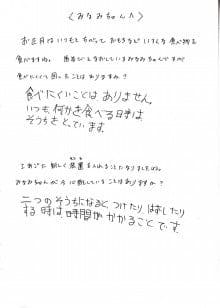 〈みなみちゃんへ〉
お正月はいつもとちがって、おもちなどいろんな食べ物を
食べますね。歯ならびをなおしているみなみちゃんですが
食べにくくて困ったことはありますか？
食べにくいことはありません。
いつも何かを食べる時は
そうちをとっています。
上あごに新しく装置を入れることになりましたね。
みなみちゃんが今心配していることはありますか？
二つのそうちになると、つけたり、はずしたり
する時は、時間がかかることです。